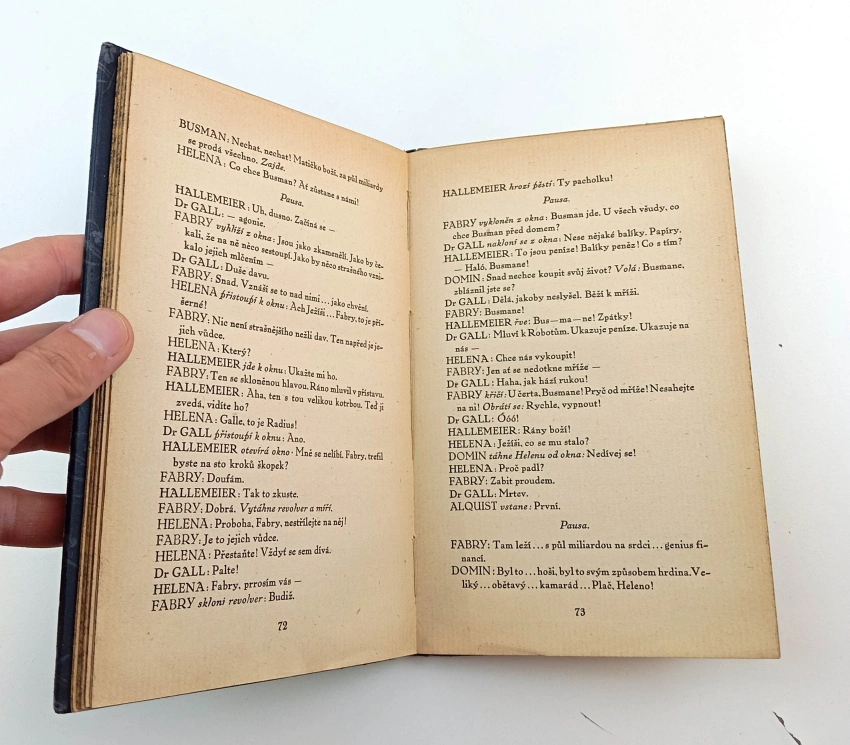 BUSMAN: Nechat, nechat! Matičko boží, za půl miliardy
se prodá všechno. Zajde.
HELENA: Co chce Busman? Ať zůstane s námi!
Pausa.
HALLEMEIER: Uh, dusno. Začíná se —
Dr GALL: — agonie.
FABRY vyhlíží z okna: Jsou jako zkamenělí. Jako by če-
kali, že na ně něco sestoupí. Jako by něco strašného vzni-
kalo jejich mlčením —
Dr GALL: Duše davu.
FABRY: Snad. Vznáší se to nad nimi... jako chvění.
HELENA přistoupí k oknu: Ach Ježíši... Fabry, to je pří-
šerné!
FABRY: Nic není strašnějšího nežli dav. Ten napřed je je-
jich vůdce.
HELENA: Který?
HALLEMEIER jde k oknu: Ukažte mi ho.
FABRY: Ten se skloněnou hlavou. Ráno mluvil v přístavu.
HALLEMEIER: Aha, ten s tou velikou kotrbou. Teď ji
zvedá, vidíte ho?
HELENA: Galle, to je Radius!
Dr GALL přistoupí k oknu: Ano.
HALLEMEIER otevírá okno: Mně se nelíbí. Fabry, trefil
byste na sto kroků škopek?
FABRY: Doufám.
HALLEMEIER: Tak to zkuste.
FABRY: Dobrá. Vytáhne revolver a míří.
HELENA: Proboha, Fabry, nestřílejte na něj!
FABRY: Je to jejich vůdce.
HELENA: Přestaňte! Vždyť se sem dívá.
Dr GALL: Palte!
HELENA: Fabry, prrosím vás —
FABRY skloní revolver: Budiž.
72
HALLEMEIER hrozí pěstí: Ty pacholku!
Pausa.
FABRY vykloněn z okna: Busman jde. U všech všudy, co
chce Busman před domem?
Dr GALL nakloní se z okna: Nese nějaké balíky. Papíry.
HALLEMEIER: To jsou peníze! Balíky peněz! Co s tím?
— Haló, Busmane!
DOMIN: Snad nechce koupit svůj život? Volá: Busmane,
zbláznil jste se?
Dr GALL: Dělá, jakoby neslyšel. Běží k mříži.
FABRY: Busmane!
HALLEMEIER řve: Bus—ma—ne! Zpátky!
Dr GALL: Mluví k Robotům. Ukazuje peníze. Ukazuje na
nás —
HELENA: Chce nás vykoupit!
FABRY: Jen ať se nedotkne mříže —
Dr GALL: Haha, jak hází rukou!
FABRY křičí: U čerta, Busmane! Pryč od mříže! Nesahejte
na ni! Obrátí se: Rychle, vypnout!
Dr GALL: Óóó!
HALLEMEIER: Rány boží!
HELENA: Ježíši, co se mu stalo?
DOMIN táhne Helenu od okna: Nedívej se!
HELENA: Proč padl?
FABRY: Zabit proudem.
Dr GALL: Mrtev.
ALQUIST vstane: První.
Pausa.
FABRY: Tam leží... s půl miliardou na srdci... genius fi-
nancí.
DOMIN: Byl to... hoši, byl to svým způsobem hrdina. Ve-
liký... obětavý... kamarád... Plač, Heleno!
73